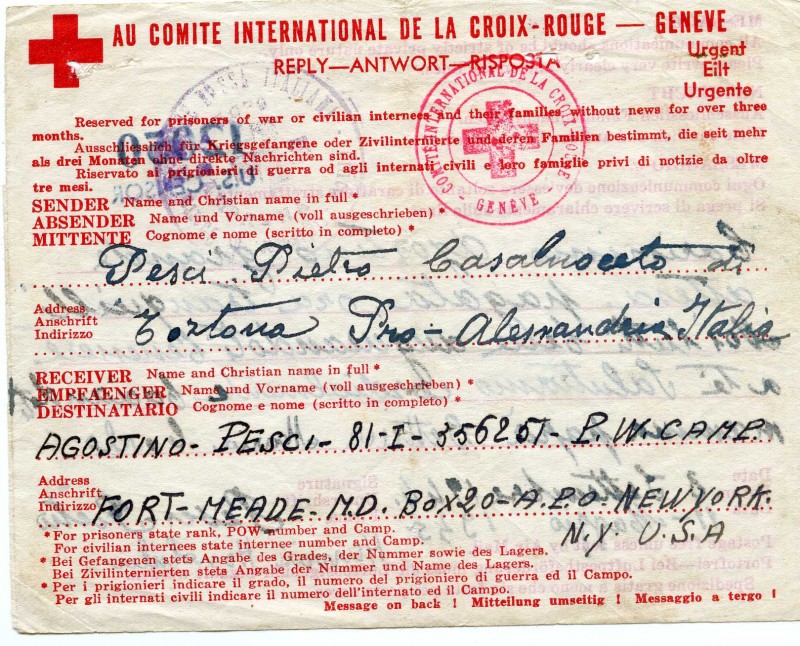 AU COMITE INTERNATIONAL DE LA CROIX-ROUGE — GENEVE
REPLY—ANTWORT—RISPOSTA
Urgent
Eilt
Urgente
COMITÉ INTERNATIONAL DE LA CROIX-ROUGE - GENÈVE
Reserved for prisoners of war or civilian internees and their families without news for over three
months.
Ausschliesslich für Kriegsgefangene oder Zivilinternierte und deren Familien bestimmt, die seit mehr
als drei Monaten ohne direkte Nachrichten sind.
Riservato ai prigionieri di guerra od agli internati civili e loro famiglie privi di notizie da oltre
tre mesi.
SENDER Name and Christian name in full *
ABSENDER Name und Vorname (voll ausgeschrieben) *
MITTENTE Cognome e nome (scritto in completo) *
Pesci Pietro Casalnoceto di
Address
Anschrift
Indirizzo
Tortona Pro- Alessandria Italia
RECEIVER Name and Christian name in full *
EMPFAENGER Name und Vorname (voll ausgeschrieben) *
DESTINATARIO Cognome e nome (scritto in completo) *
AGOSTINO- PESCI- 81-I- 356251- P.W. CAMP.
Address
Anschrift
Indirizzo
FORT- MEADE- M.D. BOX20- A.P.O- NEW YORK.
N.Y. U.S.A
* For prisoners state rank, POW number and Camp.
For civilian internees state internee number and Camp.
* Bei Gefangenen stets Angabe des Grades, der Nummer sowie des Lagers.
Bei Zivilinternierten stets Angabe der Nummer und Name des Lagers.
* Per i prigionieri indicare il grado, il numero del prigioniero di guerra ed il Campo.
Per gli internati civili indicare il numero dell'internato ed il Campo.
Message on back ! Mitteilung umseitig ! Messaggio a tergo !